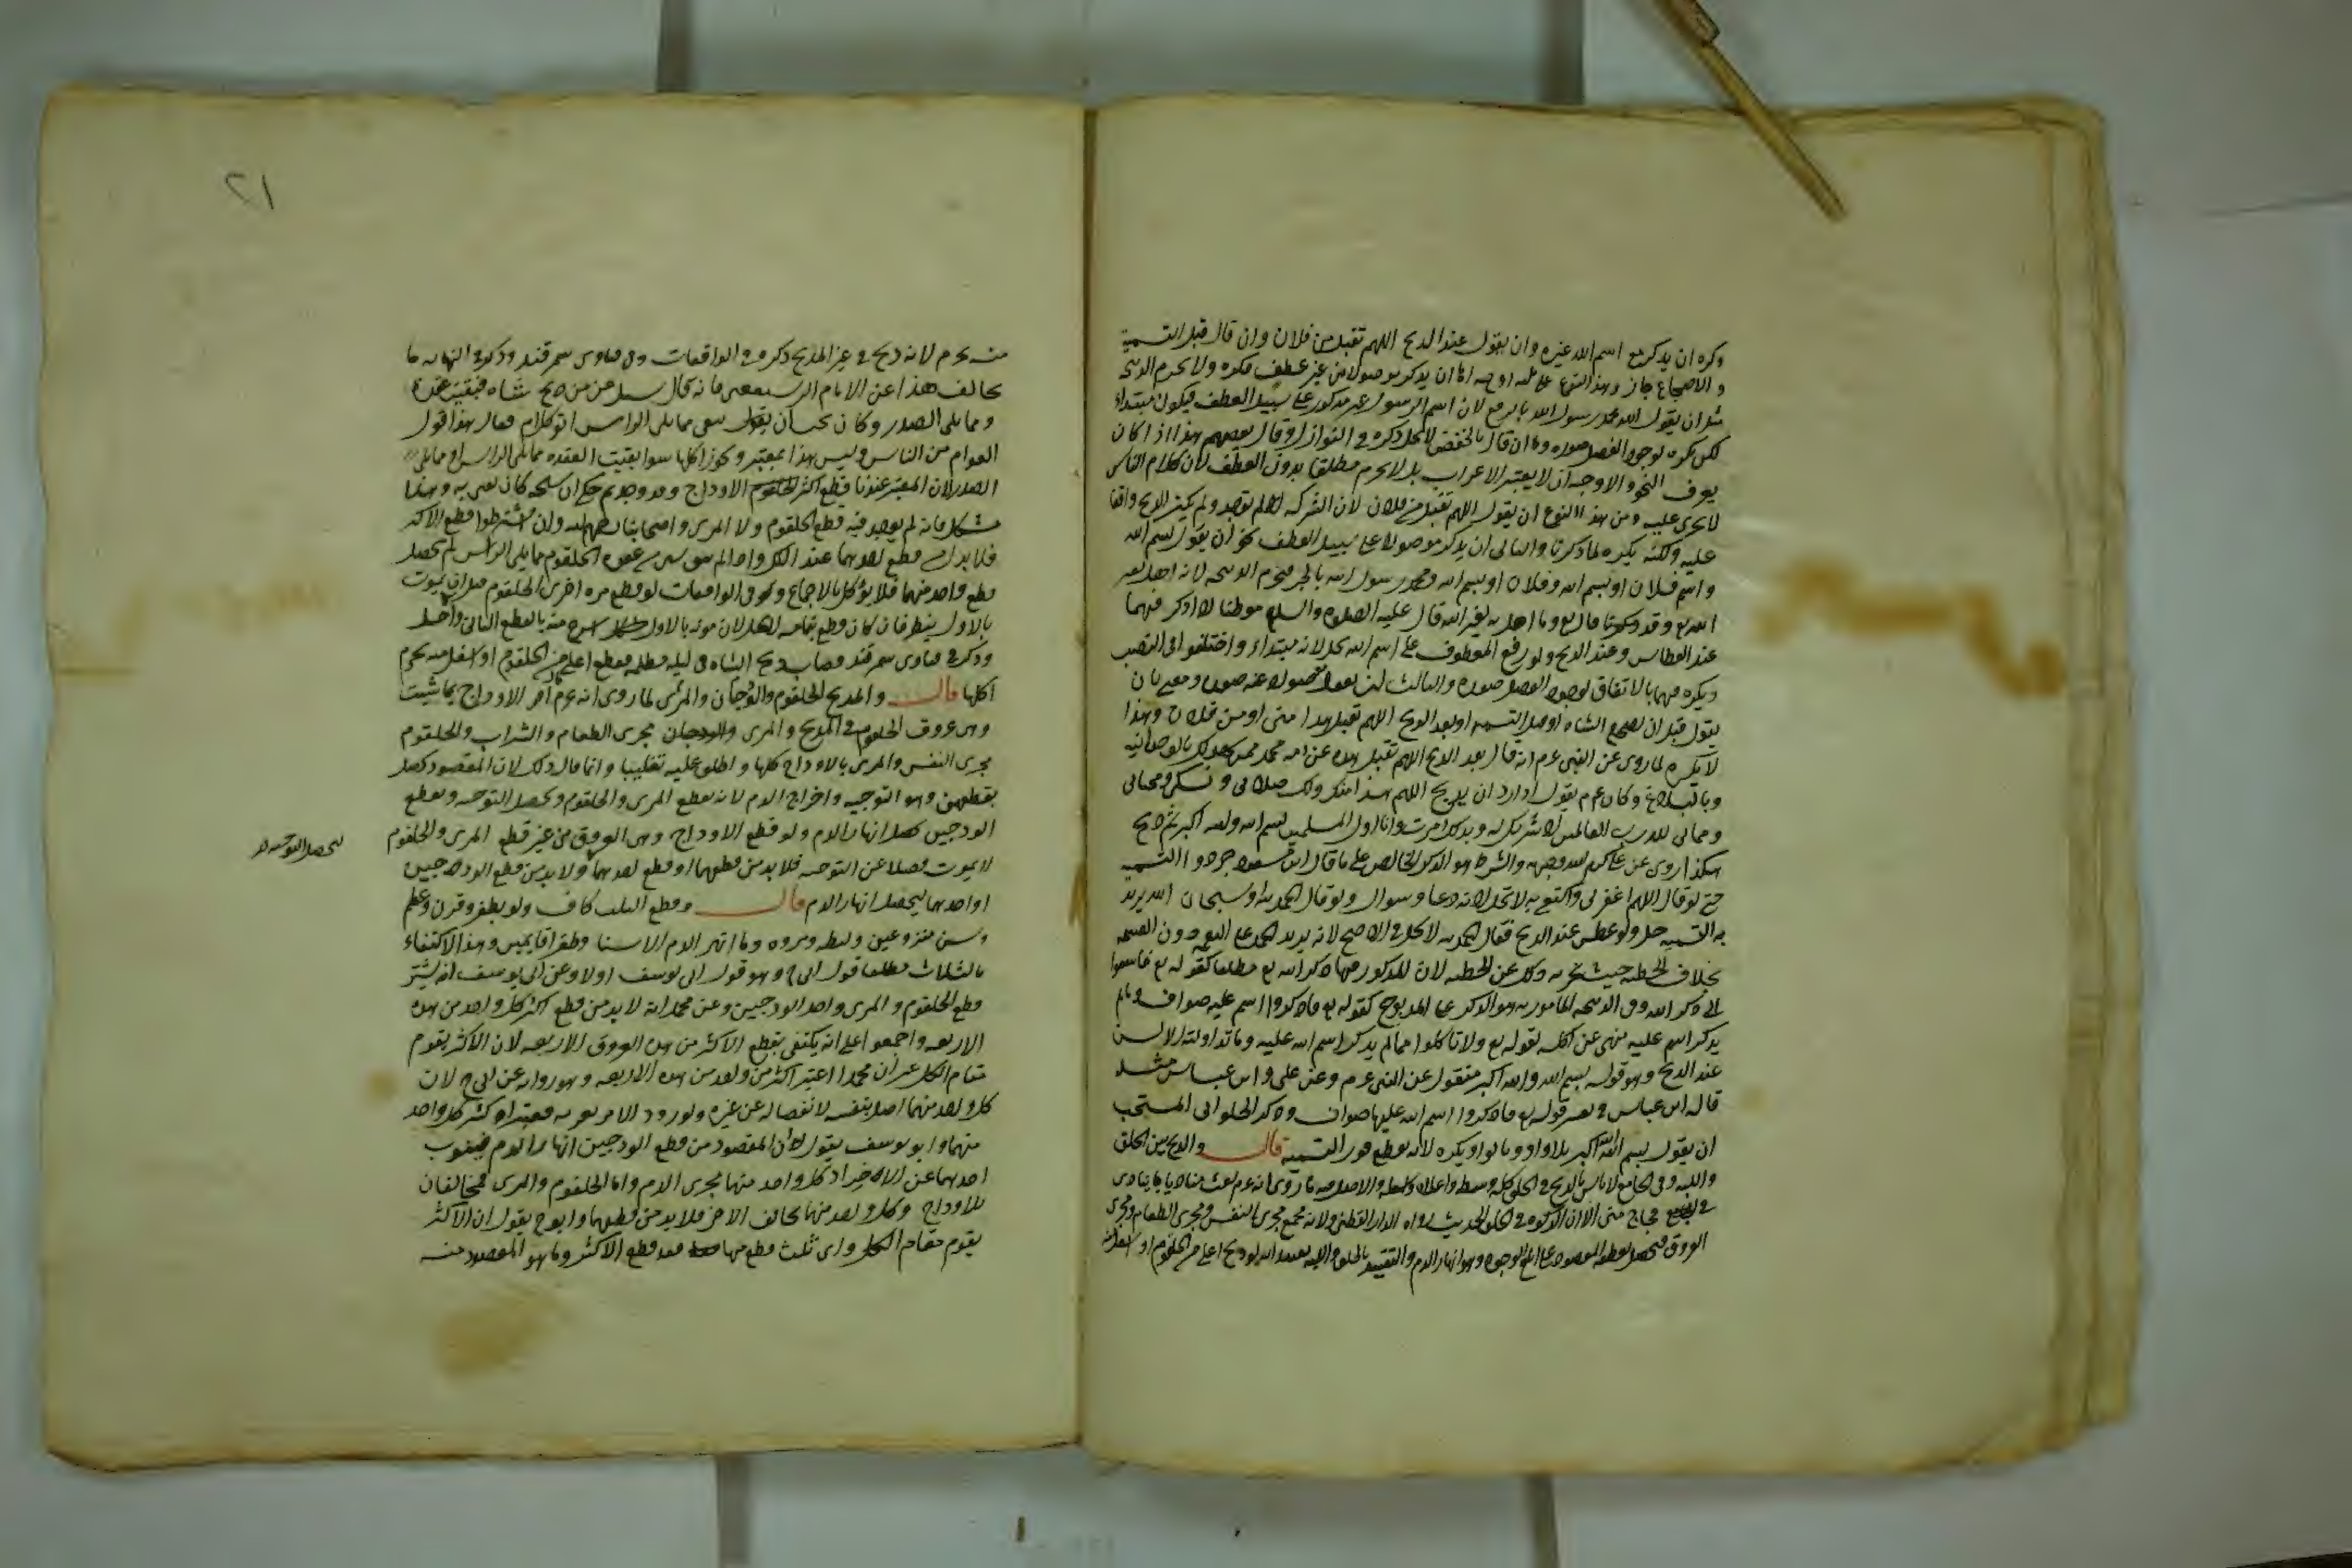 وكره ان يذكر مع اسم الله غيره وان يقول عند الذبح اللهم تقبل من فلان وان قال قبل التسمية
والاضجاع جاز وهذا النوع على ثلثه اوجه اما ان يذكر موصولا من غير عطف فكره ولا تحرم الذبيحة
مثل ان يقول الله محمد رسول الله بالرفع لان اسم الرسول غير مذكور على سبيل العطف فيكون مبتداء
لكن يكره لوجود الفصل صوره وان قال بالخفض لا يحل ذكره في النوازل وقال بعضهم هذا اذا كان
يعرف النحو والاوجه ان لا يعتبر الاعراب بل لا يحرم مطلقا بدون العطف لان كلام الناس
لا يجرى عليه ومن هذا النوع ان يقول اللهم تقبل من فلان لان الشركه لم توجد ولم يكن الذبح واقعا
عليه ولكنه يكره لما ذكرنا والثانى ان يذكر موصولا على سبيل العطف نحو ان يقول بسم الله
واسم فلان او بسم الله وفلان او بسم الله ومحمد رسول الله بالجر فتحرم الذبيحه لانه اهل لغير
الله به وقد ذكرنا قال تع وما اهل به لغير الله قال عليه الصلوة والسلام موطنان لا اذكر فيهما
عند العطاس وعند الذبح ولو رفع المعطوف على اسم الله يحل لانه مبتداء واختلفوا فى النصب
ويكره فيهما بالاتفاق لوجود الوصل صوره والثالث ان يقول مفصولا عنه صوره ومعنى بان
يقول قبل ان يضجع الشاه او قبل التسميه او بعد الذبح اللهم تقبل هذا منى او من فلان وهذا
لا يكره لما روى عن النبى عم انه قال بعد الذبح اللهم تقبل هذه عن امه محمد ممن شهد لك بالوحدانيه
وبالبلاغ وكان عم يقول اذا اراد ان يذبح اللهم هذا منك ولك صلاتى ونسكى ومحياى
ومماتى لله رب العالمين لا شريك له وبذلك امرت وانا اول المسلمين بسم الله والله اكبر ثم ذبح
هكذا روى عن على كرم الله وجهه والشرط هو الذكر الخالص على ما قال ابن مسعود جردوا التسميه
حتى لو قال اللهم اغفر لى واكتفى به لا تحل لانه دعا وسوال ولو قال الحمد لله او سبحان الله يريد
به التسميه حل ولو عطس عند الذبح فقال الحمد لله لا يحل فى الاصح لانه يريد الحمد على النعم دون التسميه
بخلاف الخطبه حيث يجزيه ذلك عن الخطبه لان المذكور فيها ذكر الله تع مطلقا كقوله تع فاسعوا
الى ذكر الله وفى الذبيحه المامور به هو الذكر على المذبوح كقوله تع فاذكروا اسم عليه صواف ومالم
يذكر اسم عليه منهى عن اكله لقوله تع ولا تاكلوا مما لم يذكر اسم الله عليه وما تداولته الالسن
عند الذبح وهو قوله بسم الله والله اكبر منقول عن النبى عم وعن على وابن عباس مثله
قاله ابن عباس فى تفسير قوله تع فاذكروا اسم الله عليها صواف وذكر الحلوانى المستحب
ان يقول بسم الله الله اكبر بلا واو وبالواو يكره لانه يقطع فور التسميه قال والذبح بين الحلق
واللبه وفى الجامع لا باس بالذبح فى الحلق كله وسطه واعلاه واسفله والاصل فيه ما روى انه عم بعث مناديا ينادى
فى فجاج منى الا ان الذكوه فى الحلق الحديث رواه الدارقطنى ولانه مجمع مجرى النفس ومجرى الطعام ومجرى
العروق فيحصل بقطعه المقصود على ابلغ الوجوه وهو انهار الدم والتقييد بالحلق واللبه يفيد انه لو ذبح اعلى من الحلقوم او اسفل
٢١
منه يحرم لانه ذبح فى غير المذبح ذكره فى الواقعات وفى فتاوى سمرقند وذكر فى النهايه ما
يخالف هذا عن الامام الرستغفنى فانه قال سئل عن من ذبح شاه فبقيت عقدة
ومما يلى الصدر وكان يجب ان يبقى مما يلى الراس اتوكل ام فقال هذا قول
العوام من الناس وليس هذا بمعتبر ويجوز اكلها سوا بقيت العقده مما يلى الراس او مما يلى
الصدر لان المعتبر عندنا قطع اكثر الاوداج وقد وجد ثم حكى ان شيخه كان يفتى به وهذا
مشكل فانه لم يوجد فيه قطع الحلقوم ولا المرى واصحابنا رضهم الله وان اشترطوا قطع الاكثر
فلا بد من قطع احدهما عند الكل واذا لم يبق شى من عقده الحلقوم مما يلى الراس لم يحصل
قطع واحد منهما فلا يؤكل بالاجماع وفى الواقعات لو قطع مره اخرى الحلقوم قبل ان يموت
بالاول ينظر فان كان قطع بتمامه لا يحل لان موته بالاول اسرع منه بالقطع الثانى والا حل
وذكر فى فتاوى سمرقند قصاب ذبح الشاه فى ليله مظلمه فقطع اعلى من الحلقوم او اسفل منه يحرم
اكلها قال والمذبح الحلقوم والودجان والمرئ لما روى انه عم امر الاوداج بما شئت
وهى عروق الحلقوم فى المذبح والمرى والودجان مجرى الطعام والشراب والحلقوم
مجرى النفس والمرى بالاوداج كلها واطلق عليه تغليبا وانما قال ذلك لان المقصود يحصل
بقطعهن وهو التوجيه واخراج الدم لانه بقطع المرى والحلقوم يحصل التوحيه وبقطع
الودجين يحصل انهار الدم ولو قطع الاوداج وهى العروق من غير قطع المرى والحلقوم
لا يموت فضلا عن التوحيه فلا بد من قطعهما او قطع احدهما ولا بد من قطع الودجين
ليحصل التوحيه
او احدهما ليحصل انهار الدم قال وقطع الثلث كاف ولو بظفر وقرن وعظم
وسن منزوعين وليطه ومروه وما انهر الدم الا سنا وظفرا قايمين وهذا الاكتفاء
بالثلاث مطلقا قول ابى ح وهو قول ابى يوسف اولا وعن ابى يوسف انه يشترط
قطع الحلقوم والمرى واحد الودجين وعن محمد انه لا بد من قطع اكثر كل واحد من هذه
الاربعه واجمعوا على انه يكتفى بقطع الاكثر من هذه العروق الاربعه لان الاكثر يقوم
مقام الكل غير ان محمدا اعتبر اكثر من واحد من هذه الاربعه وهو روايه عن ابى ح لان
كل واحد منهما اصل بنفسه لانفصاله عن غيره ولورود الامر بفريه فيعتبر اكثر كل واحد
منهما وابو يوسف يقول لان المقصود من قطع الودجين انهار الدم فينوب
احدهما عن الاخر اذ كل واحد منهما مجرى الدم واما الحلقوم والمرى فمخالفان
للاوداج وكل واحد منهما يخالف الاخر فلا بد من قطعهما وابو ح يقول ان الاكثر
يقوم مقام الكل واى ثلث قطع منها فقد قطع الاكثر وما هو المقصود منه